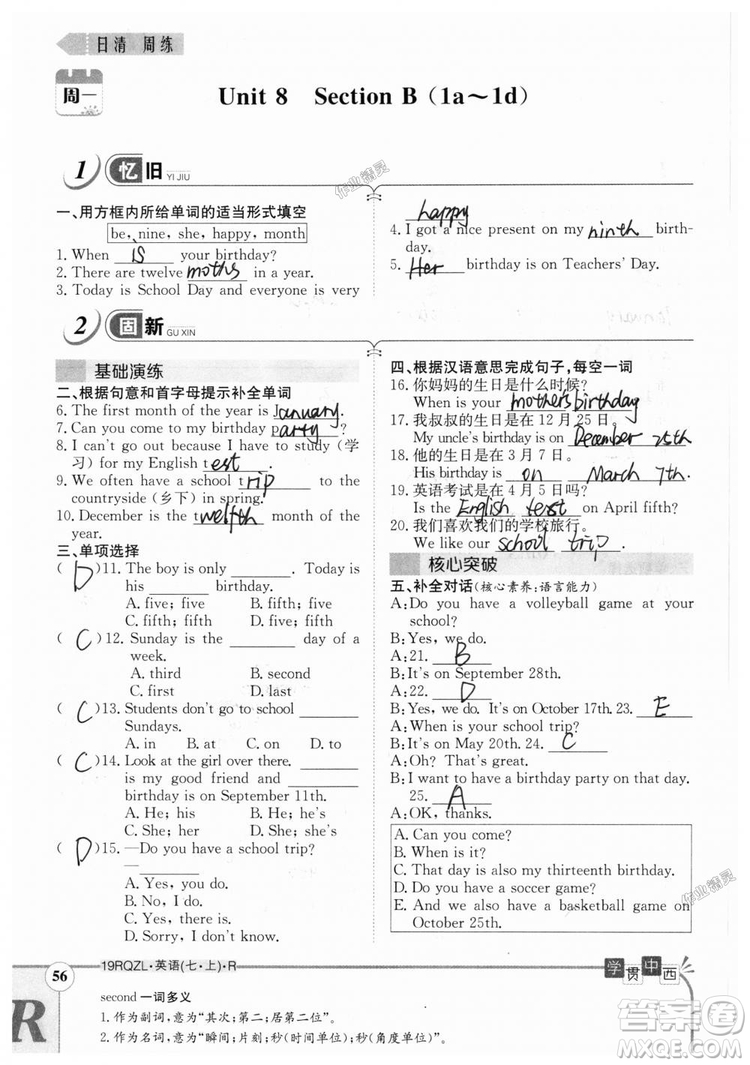 日清 周练
周一
Unit 8 Section B (1a～1d)
1 忆旧 YI JIU
一、用方框内所给单词的适当形式填空
be, nine, she, happy, month
1. When is your birthday?
2. There are twelve moths in a year.
3. Today is School Day and everyone is very
happy
4. I got a nice present on my ninth birth-
day.
5. Her birthday is on Teachers' Day.
2 固新 GU XIN
基础演练
二、根据句意和首字母提示补全单词
6. The first month of the year is January.
7. Can you come to my birthday party?
8. I can't go out because I have to study (学
习) for my English test.
9. We often have a school trip to the
countryside (乡下) in spring.
10. December is the twelfth month of the
year.
三、单项选择
( D )11. The boy is only ____. Today is
his ____ birthday.
A. five; five B. five; fifth
C. fifth; fifth D. fifth; five
( C )12. Sunday is the ____ day of a
week.
A. third B. second
C. first D. last
( C )13. Students don't go to school ____
Sundays.
A. in B. at C. on D. to
( C )14. Look at the girl over there. ____
is my good friend and ____
birthday is on September 11th.
A. He; his B. His; he
C. She; her D. Her; she
( D )15. —Do you have a school trip?
—____
A. Yes, you do.
B. No, I do.
C. Yes, we do.
D. Sorry, I don't.
四、根据汉语意思完成句子,每空一词
16. 你妈妈的生日是什么时候?
When is your mother's birthday?
17. 我叔叔的生日是在 12 月 25 日。
My uncle's birthday is on December 25th
18. 他的生日是在 3 月 7 日。
His birthday is on March 7th.
19. 英语考试是在 4 月 5 日吗?
Is the English test on April fifth?
20. 我们喜欢我们的学校旅行。
We like our school trip.
核心突破
五、补全对话(核心素养:语言能力)
A: Do you have a volleyball game at your
school?
B: Yes, we do.
A: 21. B
B: It's on September 28th.
A: 22. D
B: Yes, we do. It's on October 17th. 23. E
A: When is your school trip?
B: It's on May 20th. 24. C
B: I want to have a birthday party on that day.
25. A
A: OK, thanks.
A. Can you come?
B. When is it?
C. That day is also my thirteenth birthday.
D. Do you have a soccer game?
E. And we also have a basketball game on
October 25th.
56
19RQZL·英语(七·上)·R
学贯中西
second 一词多义
1. 作为副词,意为"其次;第二;居第二位"。
2. 作为名词,意为"瞬间;片刻;秒(时间单位);秒(角度单位)"。
R
作业精灵
作业精灵
答案圈
MXQE.COM